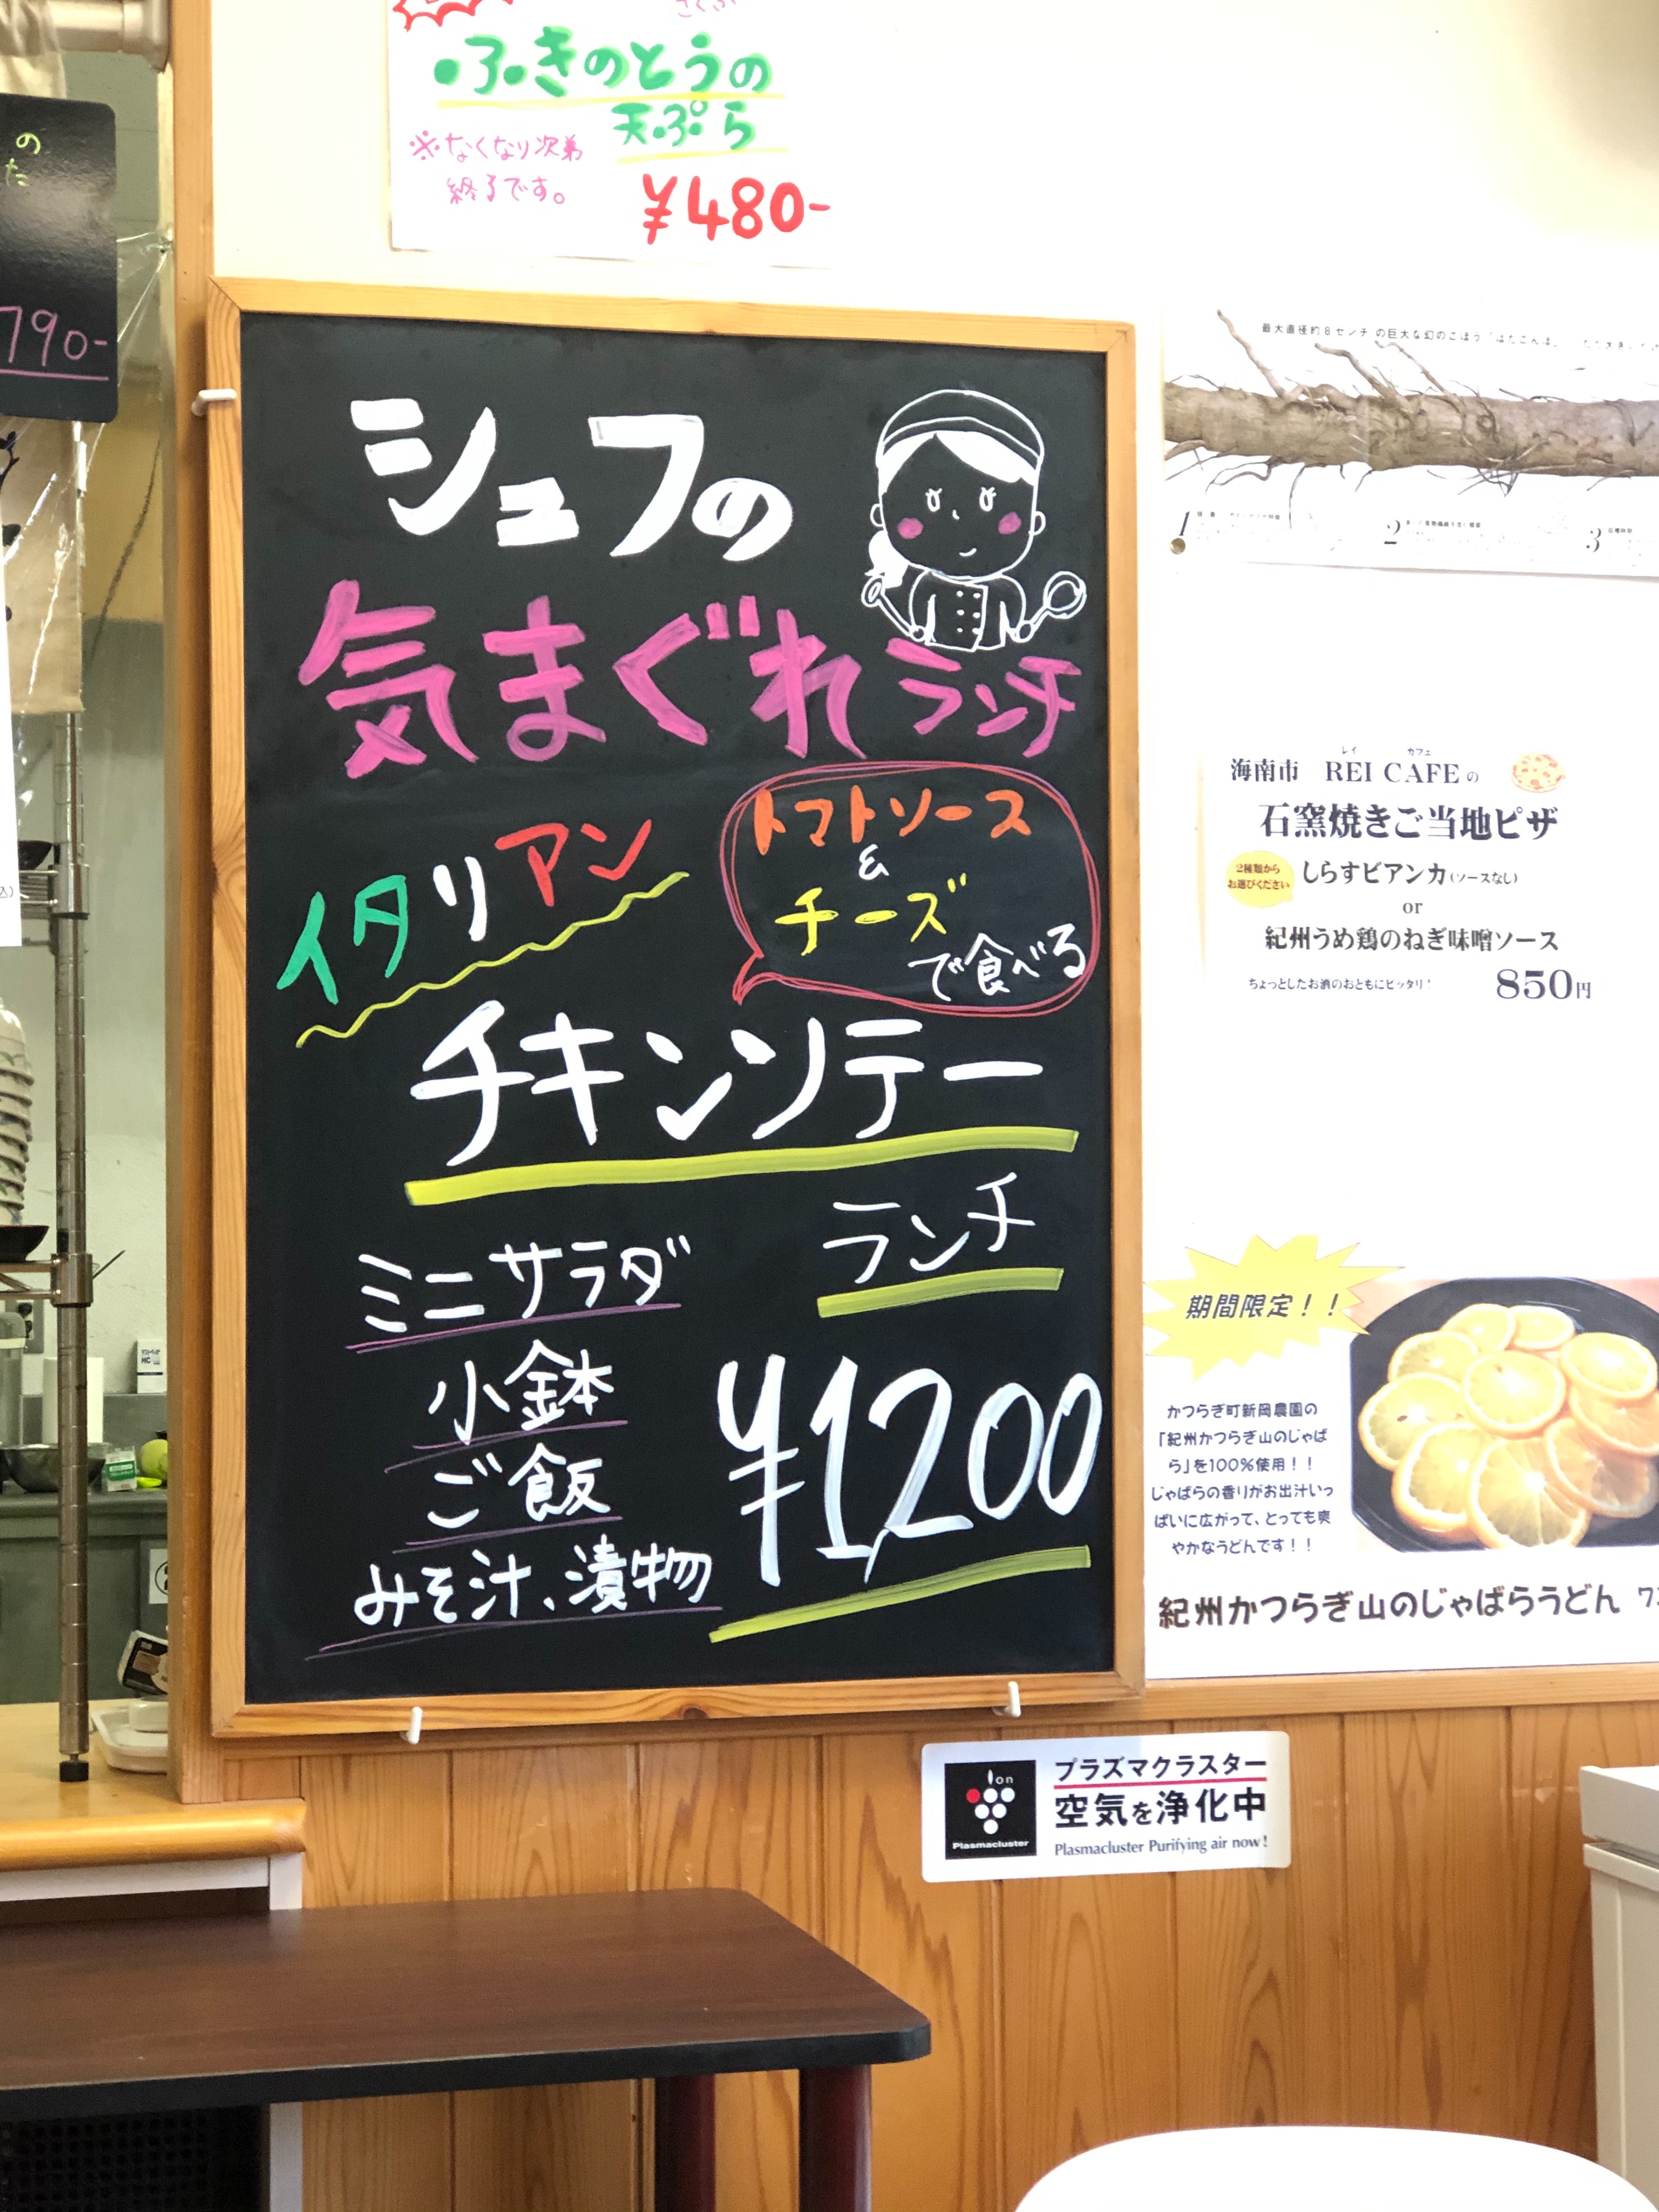 さくふ
ふきのとうの
天ぷら
※なくなり次第
終了です。
¥480-
の
た
790-
シェフの
気まぐれランチ
イタリアン
トマトソース
&
チーズ
で食べる
チキンソテー
ランチ
ミニサラダ
小鉢
ご飯
みそ汁、漬物
¥1,200
最大直径約8センチの巨大な幻のごぼう「はたごんぼ」
1
2
3
レイ カフェ
海南市 REI CAFEの
石窯焼きご当地ピザ
2種類から
お選びください
しらすビアンカ(ソースなし)
or
紀州うめ鶏のねぎ味噌ソース
ちょっとしたお酒のおともにピッタリ!
850円
期間限定!!
かつらぎ町新岡農園の
「紀州かつらぎ山のじゃば
ら」を100%使用!!
じゃばらの香りがお出汁いっ
ぱいに広がって、とっても爽
やかなうどんです!!
紀州かつらぎ山のじゃばらうどん
ion
Plasmacluster
プラズマクラスター
空気を浄化中
Plasmacluster Purifying air now!